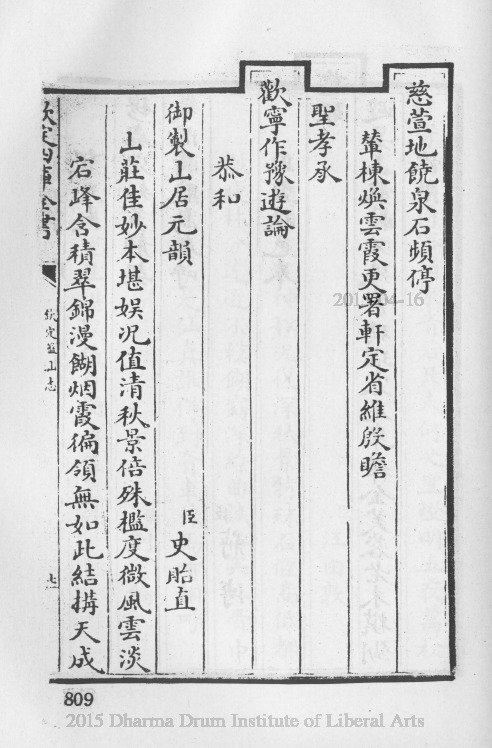 慈萱地饒泉石頻停
輦棟煥雲霞更署軒定省維殷瞻
聖孝承
歡寧作豫遊論
恭和
御製山居元韻
臣史貽直
山莊佳妙本堪娱况值清秋景倍殊檻度微風雲淡
宕峰含積翠錦漫餬烟霞徧領無如此結搆天成
欽定四庫全書
欽定盤山志
七
809
2015-04-16
2015 Dharma Drum Institute of Liberal Arts